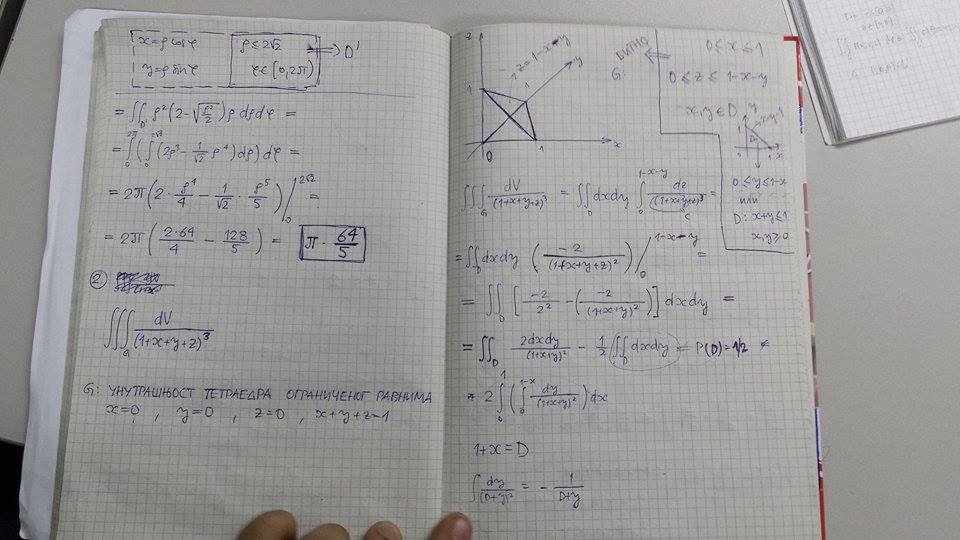 x = ρ cos φ
y = ρ sin φ
ρ ≤ 2√2
φ ∈ [0, 2π)
⇒ D'
= ∬_D' ρ² (2 - √(ρ²/2)) ρ dρ dφ =
= ∫_0^2π (∫_0^2√2 (2ρ³ - 1/√2 ρ⁴) dρ) dφ =
= 2π (2 · ρ⁴/4 - 1/√2 · ρ⁵/5) |_0^2√2 =
= 2π (2·64/4 - 128/5) = π · 64/5
2
∭_G dV/(1+x+y+z)³
G: УНУТРАШЊОСТ ТЕТРАЕДРА ОГРАНИЧЕНОГ РАВНИМА
x=0, y=0, z=0, x+y+z=1
z
1
z = 1-x-y
y
1
0
1
x
БИТНО
G:
0 ≤ x ≤ 1
0 ≤ z ≤ 1-x-y
x, y ∈ D
y
1
x+y=1
D
0
1
x
0 ≤ y ≤ 1-x
или
D: x+y ≤ 1
x, y ≥ 0
∭_G dV/(1+x+y+z)³ = ∬_D dxdy ∫_0^1-x-y dz/(1+x+y+z)³ =
c
= ∬_D dxdy (-2/(1+x+y+z)²) |_0^1-x-y =
= ∬_D [-2/2² - (-2/(1+x+y)²)] dxdy =
= ∬_D 2dxdy/(1+x+y)² - 1/2 ∬_D dxdy = P(D) = 1/2
= 2 ∫_0^1 (∫_0^1-x dy/(1+x+y)²) dx
1+x = D
∫ dy/(D+y)² = - 1/(D+y)